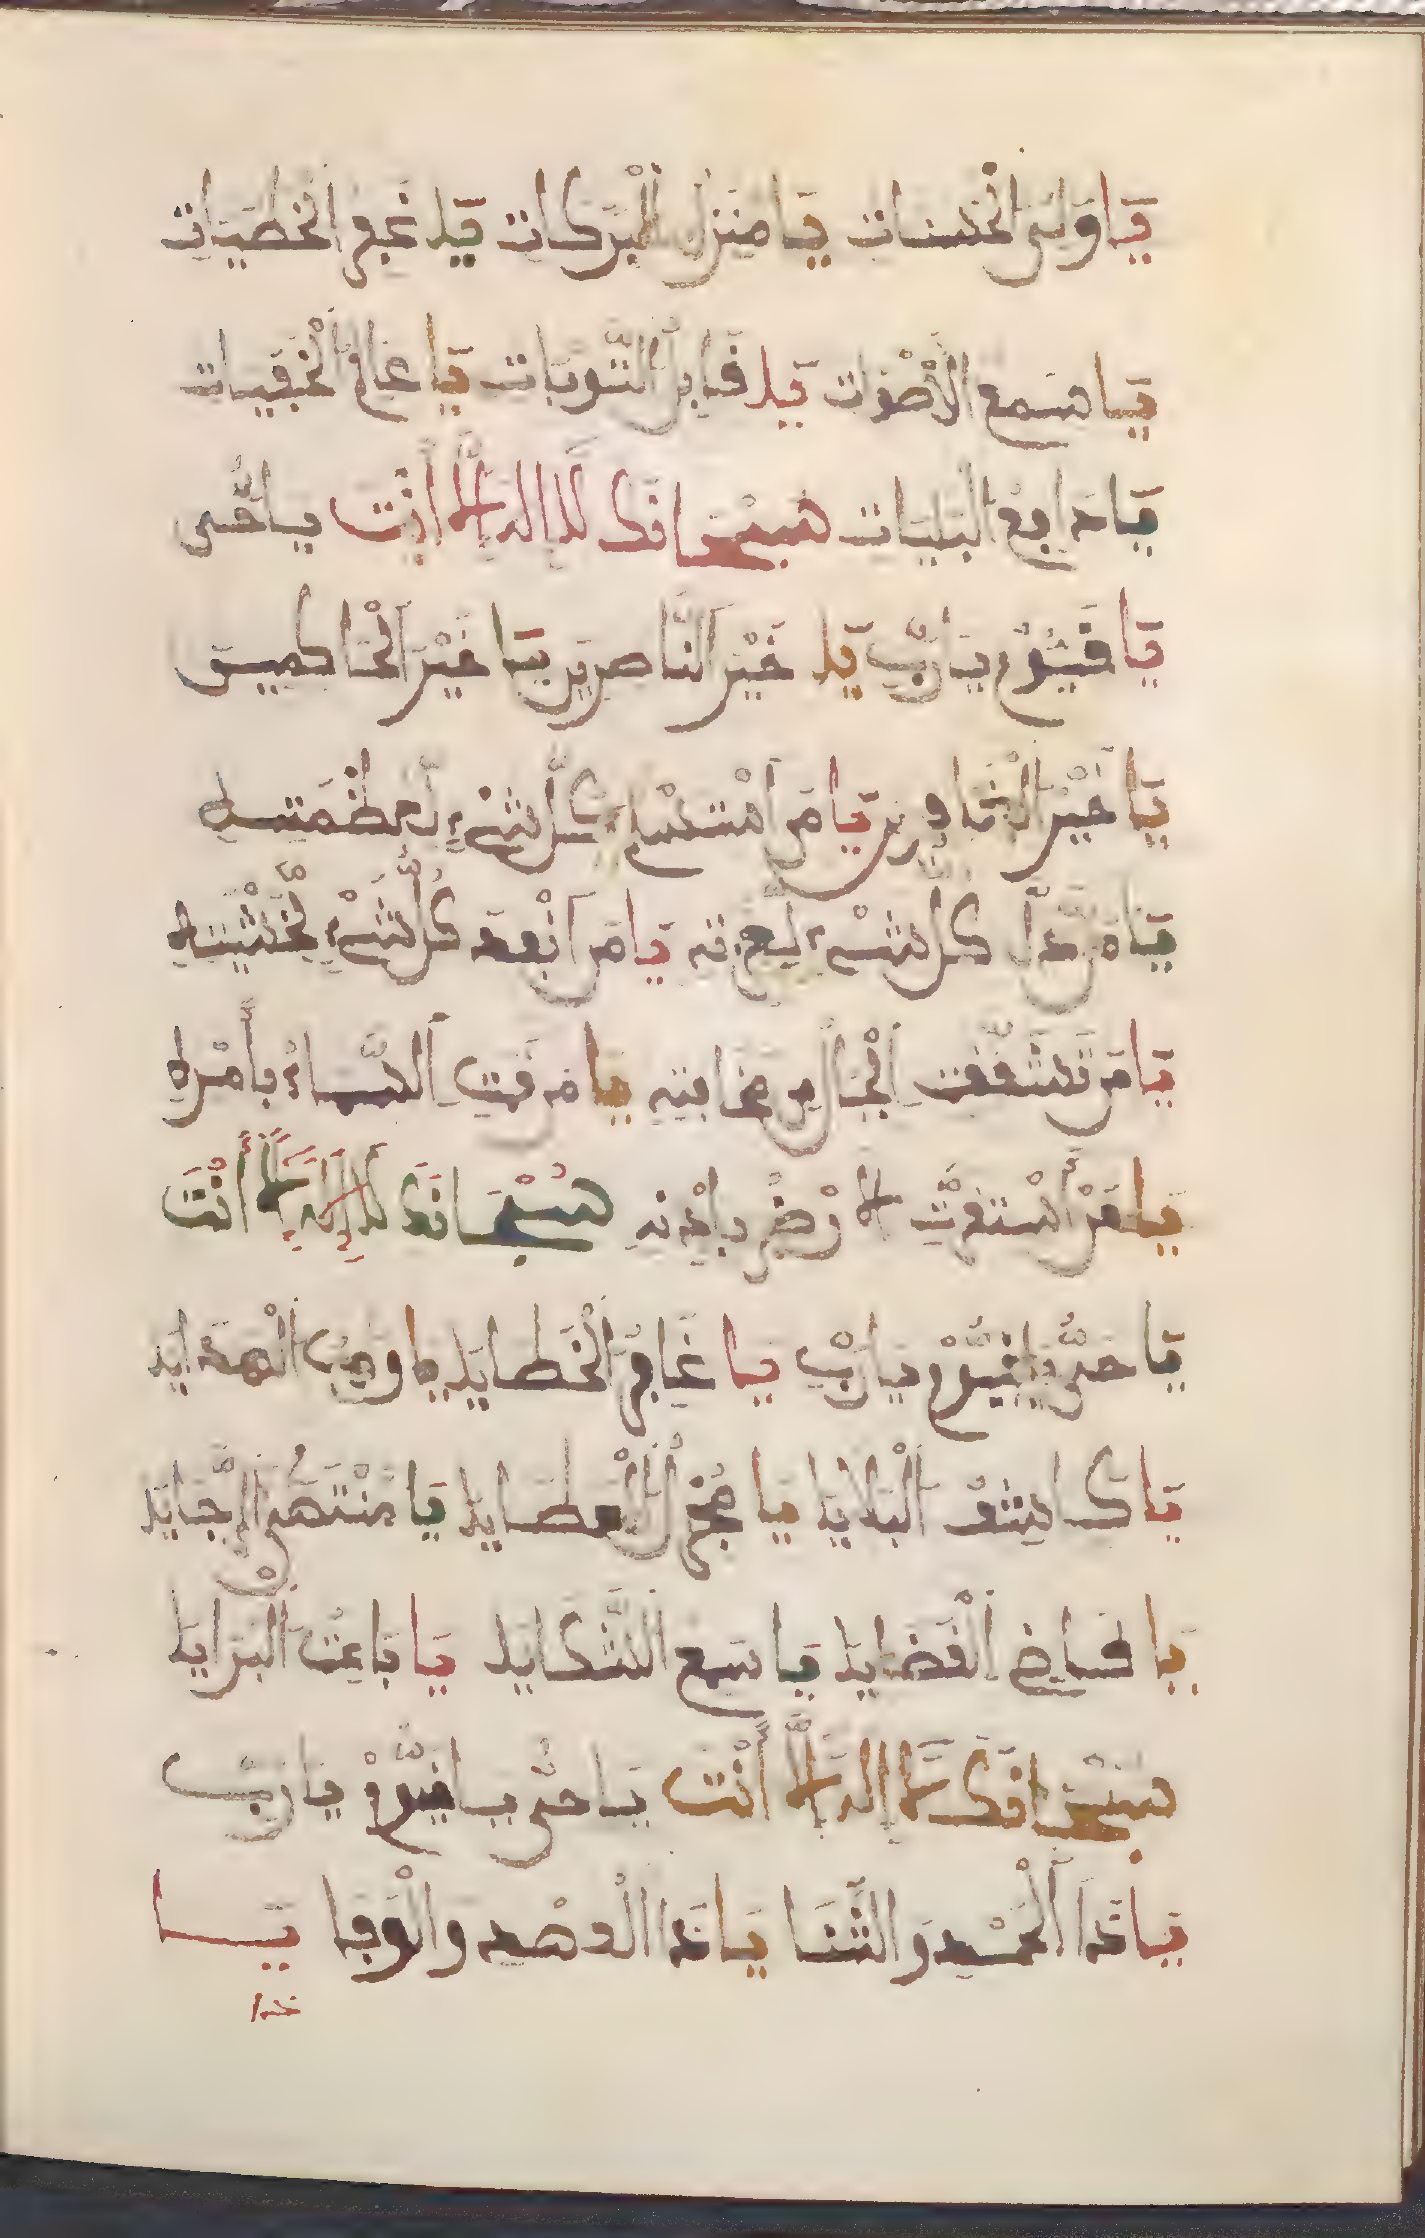 يَا وَلىَ الْحَسَنات يَا مُنَزِلَ الْبَرَكات يَا غَفِرَ الْخَطِيَات
يَا سَمِعَ الْأَصْوَات يَا قَابِلَ التَّوْبَات يَا عَالِمَ الْخَفِيَات
يَا دَافِعَ الْبَلِيَات سُبْحَانَكَ لَا إِلَهَ إِلَّا أَنْتَ يَا حَىُّ
يَا قَيُّوْمُ يَا رَبِّ يَا خَيْرَ النَّاصِرِينَ يَا خَيْرَ الْحَاكِمِينَ
يَا خَيْرَ الْغَافِرِينَ يَا مَنِ اسْتَسْلَمَ كُلُّ شَىْءٍ لِعَظَمَتِهِ
يَا مَن ذَلَّ كُلُّ شَىْءٍ لِعِزَّتِهِ يَا مَن انْقَدَ كُلُّ شَىْءٍ لِخَشْيَتِهِ
يَا مَن تَشَقَّقَتِ الْجِبَالُ مِن مَخَافَتِهِ يَا مَن قَامَتِ السَّمَاءُ بِأَمْرِهِ
يَا مَنْ اسْتَقَرَّتِ الْأَرْضُ بِإِذْنِهِ سُبْحَانَكَ لَا إِلَهَ إِلَّا أَنْتَ
يَا حَىُّ يَا قَيُّوْمُ يَا رَبِّ يَا غَافِرَ الْخَطَايَا يَا وَهِبَ الْهَدَايَا
يَا كَاشِفَ الْبَلَايَا يَا مُجْزِلَ الْعَطَايَا يَا مُنْتَهَى الرَّجَايَا
يَا قَاضِىَ الْقَضَايَا يَا سَمِعَ الشَّكَايَا يَا بَاعِثَ الْبَرَايَا
سُبْحَانَكَ لَا إِلَهَ إِلَّا أَنْتَ يَا حَىُّ يَا قَيُّوْمُ يَا رَبِّ
يَا ذَا الْحَمْدِ وَالثَّنَا يَا ذَا الْعَهْدِ وَالْوَفَا يَا
ذا